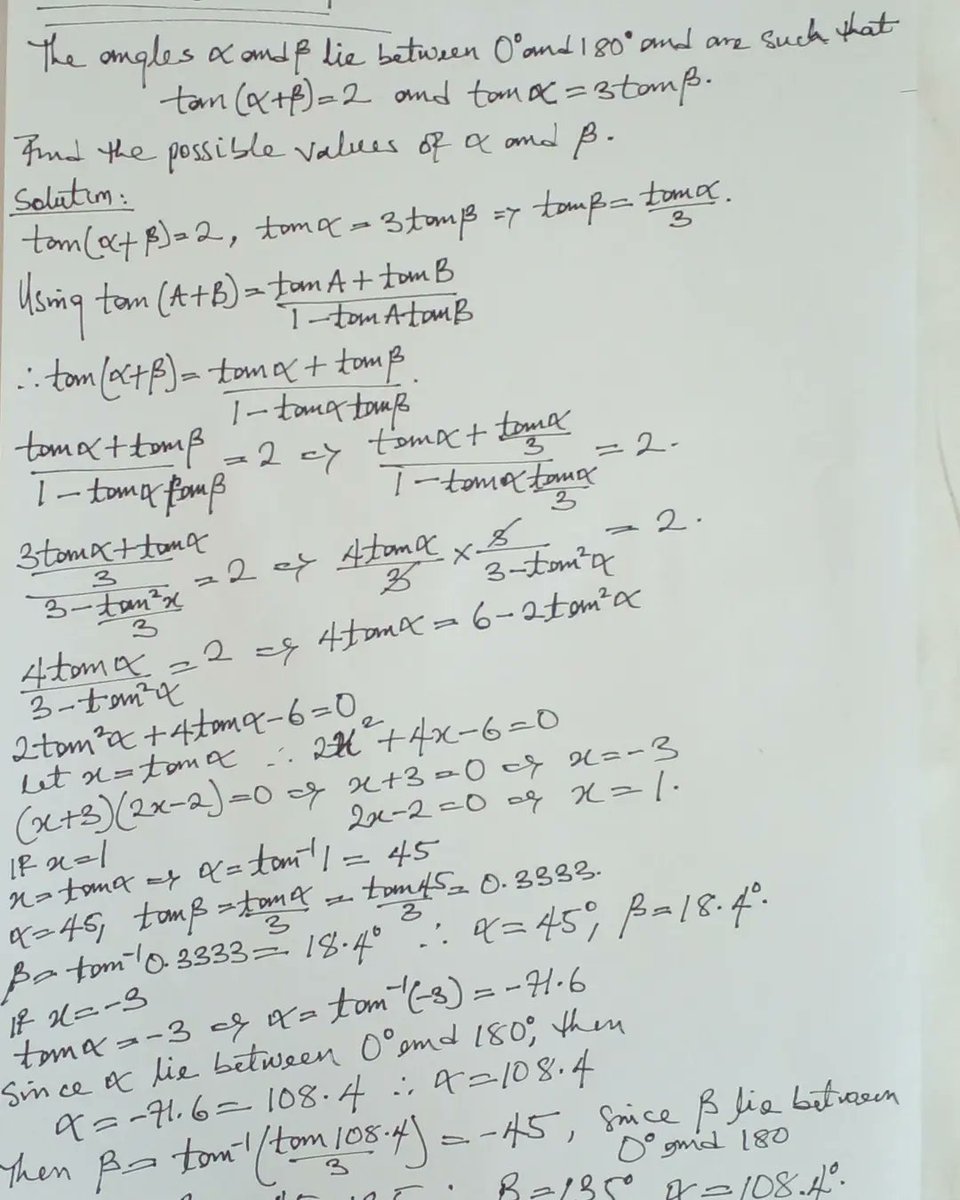 The angles α and β lie between 0° and 180° and are such that
tan(α+β)=2 and tanα=3tanβ.
Find the possible values of α and β.
Solution:
tan(α+β)=2, tanα=3tanβ => tanβ=tanα/3.
Using tan(A+B)=(tanA+tanB)/(1-tanAtanB)
∴tan(α+β)=(tanα+tanβ)/(1-tanαtanβ).
(tanα+tanβ)/(1-tanαtanβ)=2 => (tanα+tanα/3)/(1-tanαtanα/3)=2.
((3tanα+tanα)/3)/((3-tan²x)/3)=2 => 4tanα/3×3/(3-tan²α)=2.
4tanα/(3-tan²α)=2 => 4tanα=6-2tan²α
2tan²α+4tanα-6=0
Let x=tanα ∴ 2x²+4x-6=0
(x+3)(2x-2)=0 => x+3=0 => x=-3
2x-2=0 => x=1.
If x=1
x=tanα => α=tan⁻¹1=45
α=45, tanβ=tanα/3=tan45/3=0.3333.
β=tan⁻¹0.3333=18.4° ∴ α=45°, β=18.4°.
If x=-3
tanα=-3 => α=tan⁻¹(-3)=-71.6
Since α lie between 0° and 180°, then
α=-71.6=108.4 ∴ α=108.4
Then β=tan⁻¹(tan108.4/3)=-45, since β lie between
0° and 180
β=135° α=108.4°.